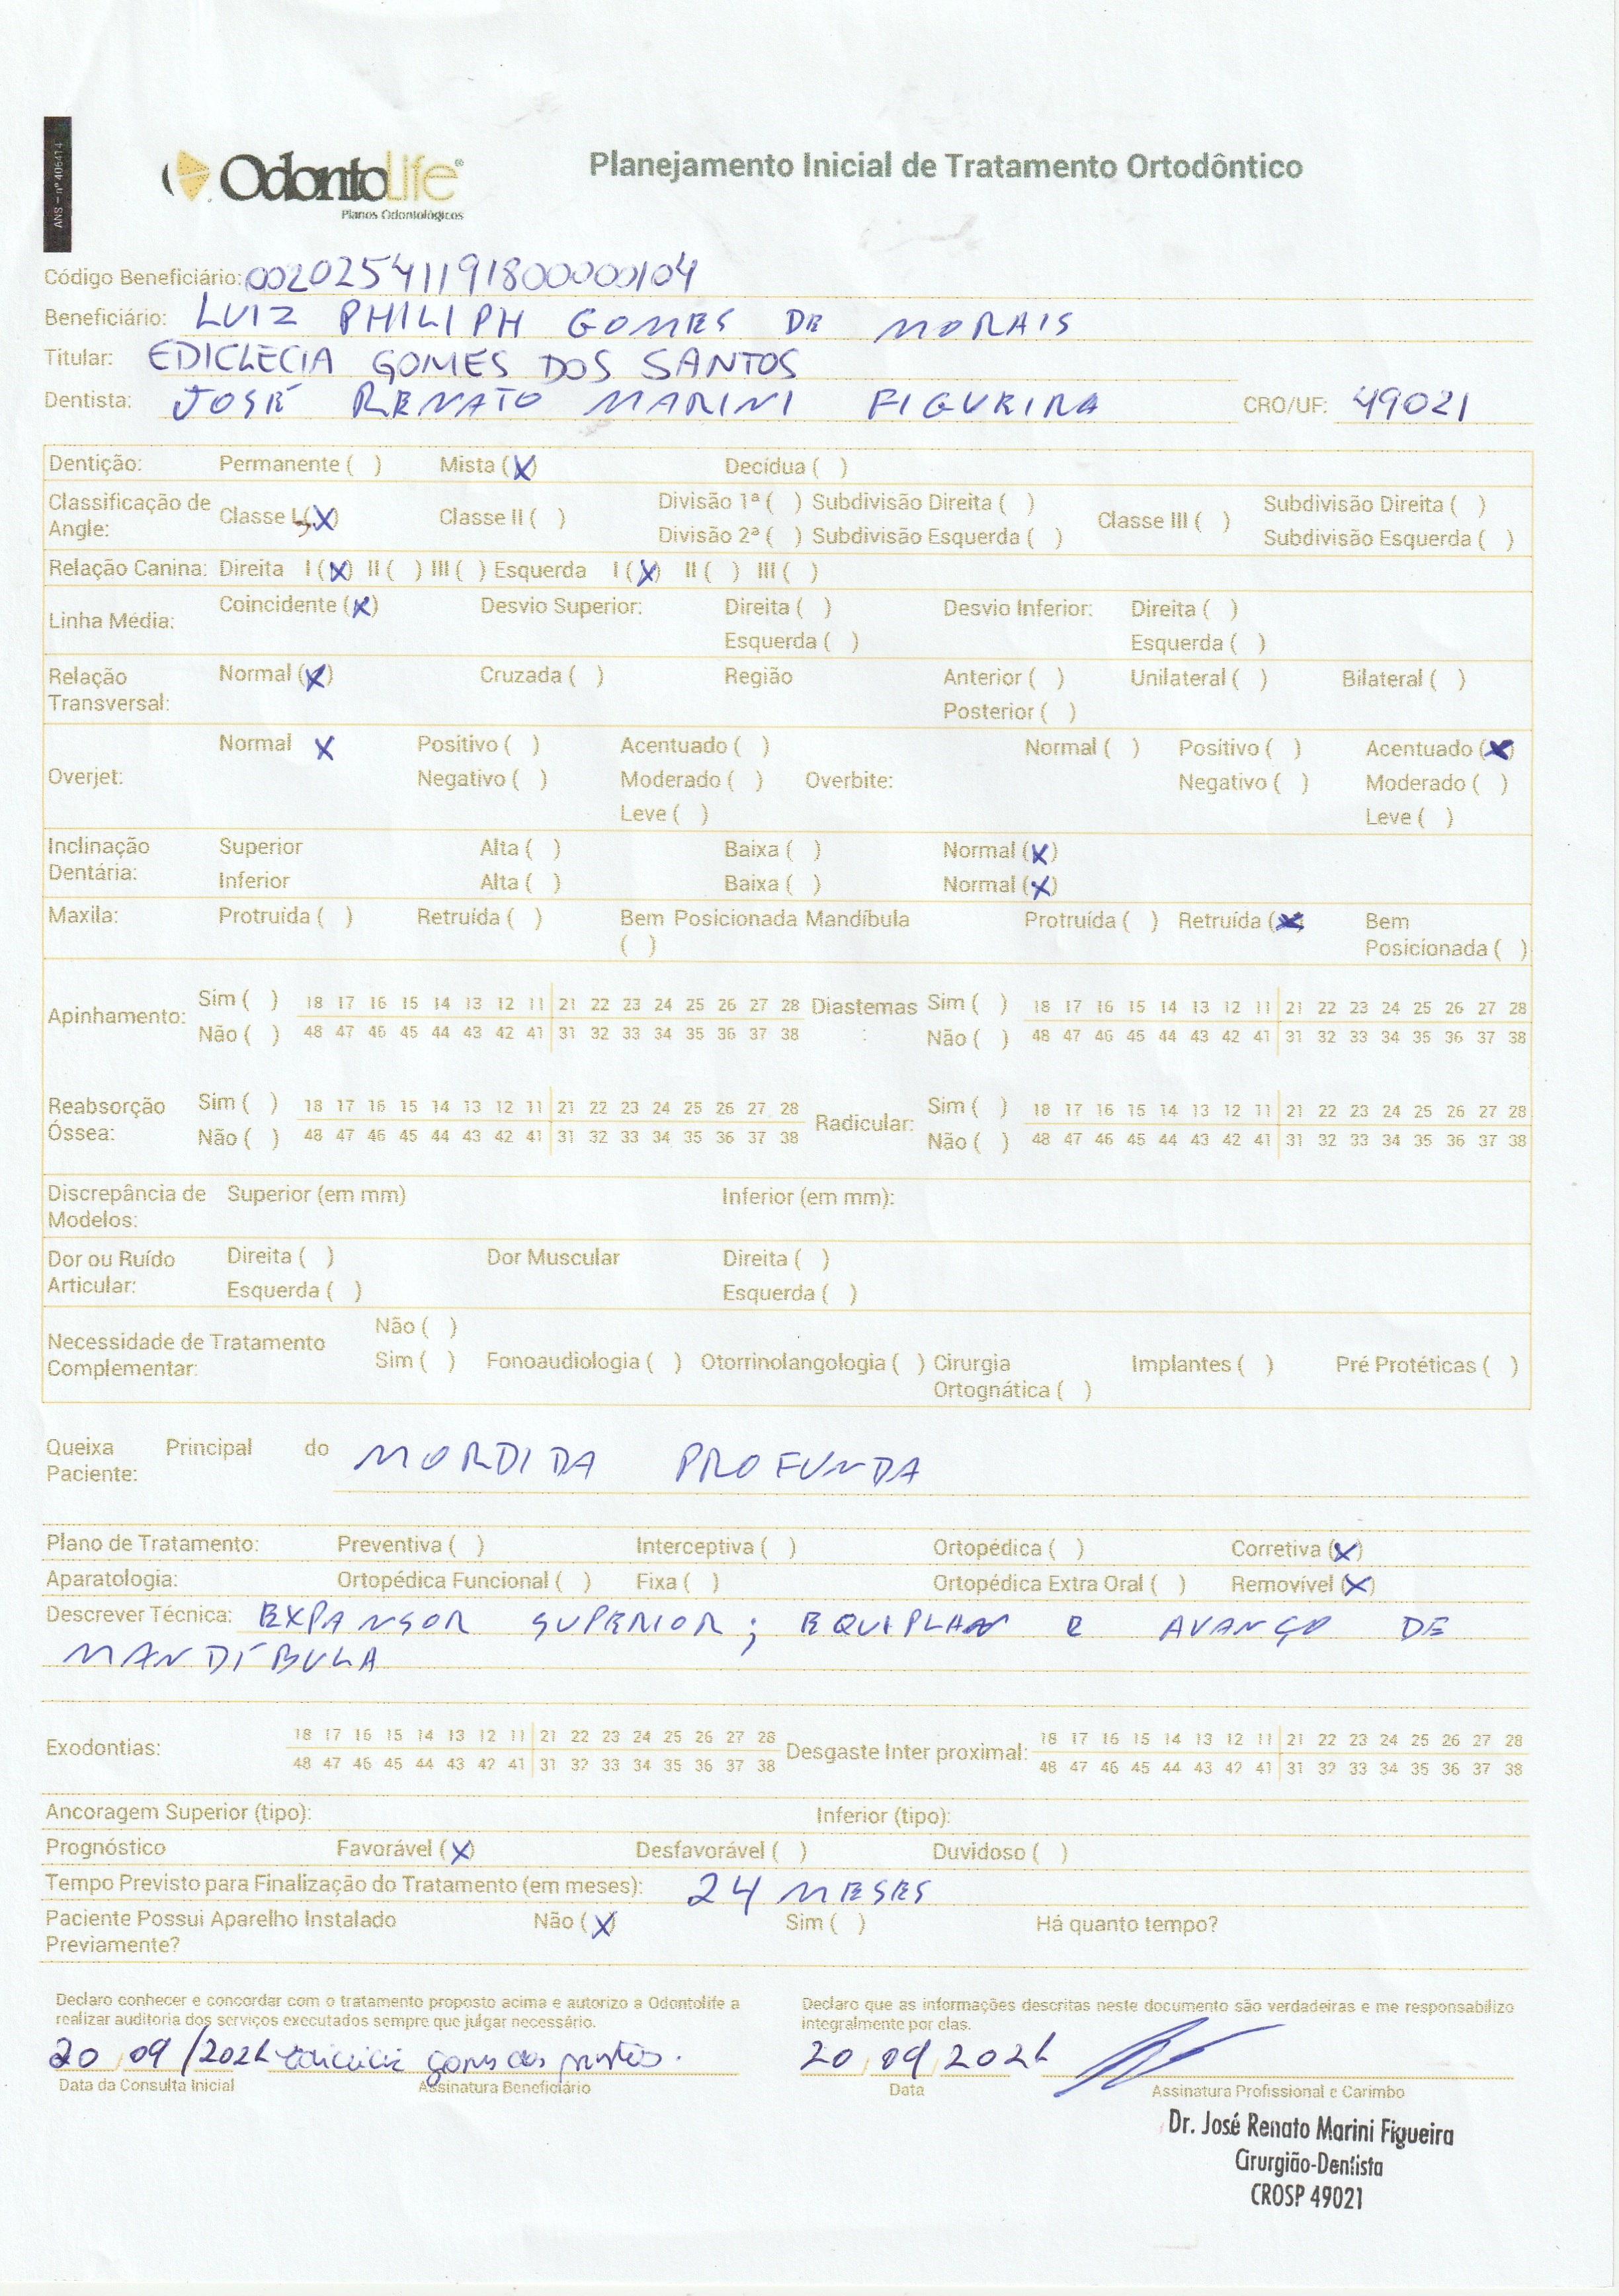 ANS – nº 406414
OdontoLife®
Planos Odontológicos
Planejamento Inicial de Tratamento Ortodôntico
Código Beneficiário: 00202541191800000104
Beneficiário: LUIZ PHILIPH GOMES DE MORAIS
Titular: EDICLECIA GOMES DOS SANTOS
Dentista: JOSÉ RENATO MARINI FIGUEIRA CRO/UF: 49021
Dentição: Permanente ( ) Mista (X) Decídua ( )
Classificação de Angle: Classe I (X) Classe II ( ) Divisão 1ª ( ) Subdivisão Direita ( ) Classe III ( ) Subdivisão Direita ( )
Divisão 2ª ( ) Subdivisão Esquerda ( ) Subdivisão Esquerda ( )
Relação Canina: Direita I (X) II ( ) III ( ) Esquerda I (X) II ( ) III ( )
Linha Média: Coincidente (X) Desvio Superior: Direita ( ) Desvio Inferior: Direita ( )
Esquerda ( ) Esquerda ( )
Relação Transversal: Normal (X) Cruzada ( ) Região Anterior ( ) Unilateral ( ) Bilateral ( )
Posterior ( )
Overjet: Normal X Positivo ( ) Acentuado ( ) Overbite: Normal ( ) Positivo ( ) Acentuado (X)
Negativo ( ) Moderado ( ) Negativo ( ) Moderado ( )
Leve ( ) Leve ( )
Inclinação Dentária: Superior Alta ( ) Baixa ( ) Normal (X)
Inferior Alta ( ) Baixa ( ) Normal (X)
Maxila: Protruída ( ) Retruída ( ) Bem Posicionada ( ) Mandíbula Protruída ( ) Retruída (X) Bem Posicionada ( )
Apinhamento: Sim ( ) 18 17 16 15 14 13 12 11 21 22 23 24 25 26 27 28 Diastemas : Sim ( ) 18 17 16 15 14 13 12 11 21 22 23 24 25 26 27 28
Não ( ) 48 47 46 45 44 43 42 41 31 32 33 34 35 36 37 38 Não ( ) 48 47 46 45 44 43 42 41 31 32 33 34 35 36 37 38
Reabsorção Óssea: Sim ( ) 18 17 16 15 14 13 12 11 21 22 23 24 25 26 27 28 Radicular: Sim ( ) 18 17 16 15 14 13 12 11 21 22 23 24 25 26 27 28
Não ( ) 48 47 46 45 44 43 42 41 31 32 33 34 35 36 37 38 Não ( ) 48 47 46 45 44 43 42 41 31 32 33 34 35 36 37 38
Discrepância de Modelos: Superior (em mm) Inferior (em mm):
Dor ou Ruído Articular: Direita ( ) Dor Muscular Direita ( )
Esquerda ( ) Esquerda ( )
Necessidade de Tratamento Complementar: Não ( )
Sim ( ) Fonoaudiologia ( ) Otorrinolangologia ( ) Cirurgia Ortognática ( ) Implantes ( ) Pré Protéticas ( )
Queixa Principal do Paciente: MORDIDA PROFUNDA
Plano de Tratamento: Preventiva ( ) Interceptiva ( ) Ortopédica ( ) Corretiva (X)
Aparatologia: Ortopédica Funcional ( ) Fixa ( ) Ortopédica Extra Oral ( ) Removível (X)
Descrever Técnica: EXPANSOR SUPERIOR; EQUIPLAN E AVANÇO DE
MANDÍBULA
Exodontias: 18 17 16 15 14 13 12 11 21 22 23 24 25 26 27 28 Desgaste Inter proximal: 18 17 16 15 14 13 12 11 21 22 23 24 25 26 27 28
48 47 46 45 44 43 42 41 31 32 33 34 35 36 37 38 48 47 46 45 44 43 42 41 31 32 33 34 35 36 37 38
Ancoragem Superior (tipo): Inferior (tipo):
Prognóstico Favorável (X) Desfavorável ( ) Duvidoso ( )
Tempo Previsto para Finalização do Tratamento (em meses): 24 MESES
Paciente Possui Aparelho Instalado Previamente? Não (X) Sim ( ) Há quanto tempo?
Declaro conhecer e concordar com o tratamento proposto acima e autorizo a Odontolife a
realizar auditoria dos serviços executados sempre que julgar necessário.
Declaro que as informações descritas neste documento são verdadeiras e me responsabilizo
integralmente por elas.
20/09/2024 20/09/2024
Data da Consulta Inicial Assinatura Beneficiário Data Assinatura Profissional e Carimbo
Dr. José Renato Marini Figueira
Cirurgião-Dentista
CROSP 49021